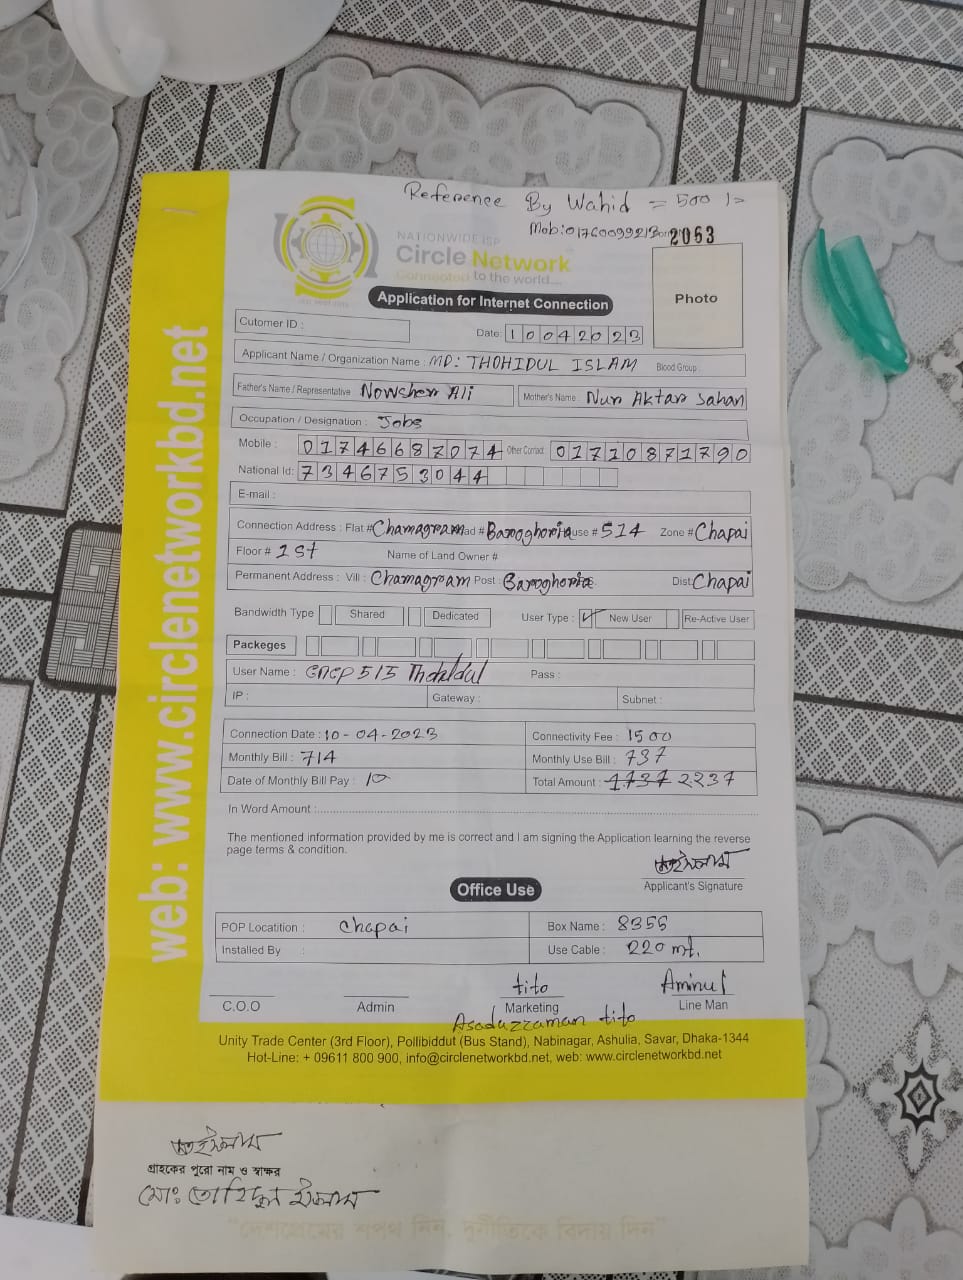 Reference By Wahid = 500/=
Mob: 01760099213
2053
NATIONWIDE ISP
Circle Network
Connected to the world....
Photo
Application for Internet Connection
Cutomer ID :
Date: 10042023
Applicant Name / Organization Name : MD: THOHIDUL ISLAM Blood Group
Father's Name / Representative Nowsher Ali Mother's Name : Nur Aktar Jahan
Occupation / Designation : Jobs
Mobile : 01746687074 Other Contact 01710871790
National Id: 7346753044
E-mail :
Connection Address : Flat # Chamagram Baroghoria # 514 Zone # Chapai
Floor # 1st Name of Land Owner #
Permanent Address : Vill : Chamagram Post : Baroghoria Dist Chapai
Bandwidth Type Shared Dedicated User Type : New User Re-Active User
Packeges
User Name : CNCP 515 Thohidul Pass :
IP : Gateway : Subnet :
Connection Date : 10-04-2023 Connectivity Fee : 1500
Monthly Bill : 714 Monthly Use Bill : 737
Date of Monthly Bill Pay : 10 Total Amount : 1737 2237
In Word Amount :
The mentioned information provided by me is correct and I am signing the Application learning the reverse
page terms & condition.
Applicant's Signature
Office Use
POP Locatition : Chapai Box Name : 8355
Installed By : Use Cable : 220 mt.
tito Aminul
C.O.O Admin Marketing Line Man
Asaduzzaman tito
Unity Trade Center (3rd Floor), Pollibiddut (Bus Stand), Nabinagar, Ashulia, Savar, Dhaka-1344
Hot-Line: + 09611 800 900, info@circlenetworkbd.net, web: www.circlenetworkbd.net
web: www.circlenetworkbd.net
গ্রাহকের পুরো নাম ও স্বাক্ষর
মোঃ তোহিদুল ইসলাম
"দেশপ্রেমের শপথ নিন, দুর্নীতিকে বিদায় দিন"